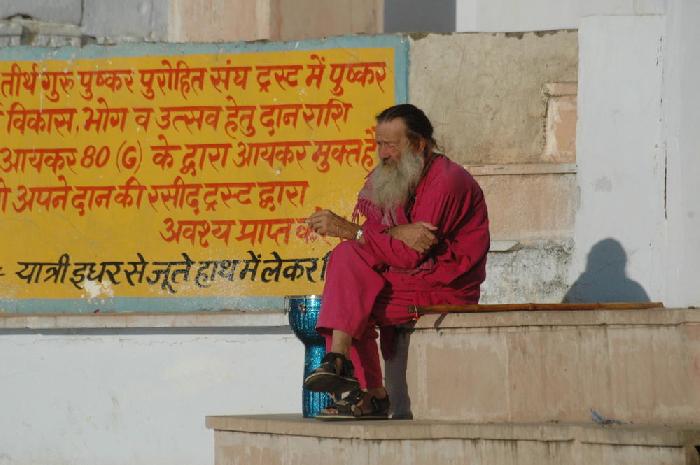 तीर्थ गुरु पुष्कर पुरोहित संघ ट्रस्ट में पुष्कर
विकास, भोग व उत्सव हेतु दान राशि
आयकर 80 (G) के द्वारा आयकर मुक्त है
अपने दान की रसीद ट्रस्ट द्वारा
अवश्य प्राप्त
यात्री इधर से जूते हाथ में लेकर